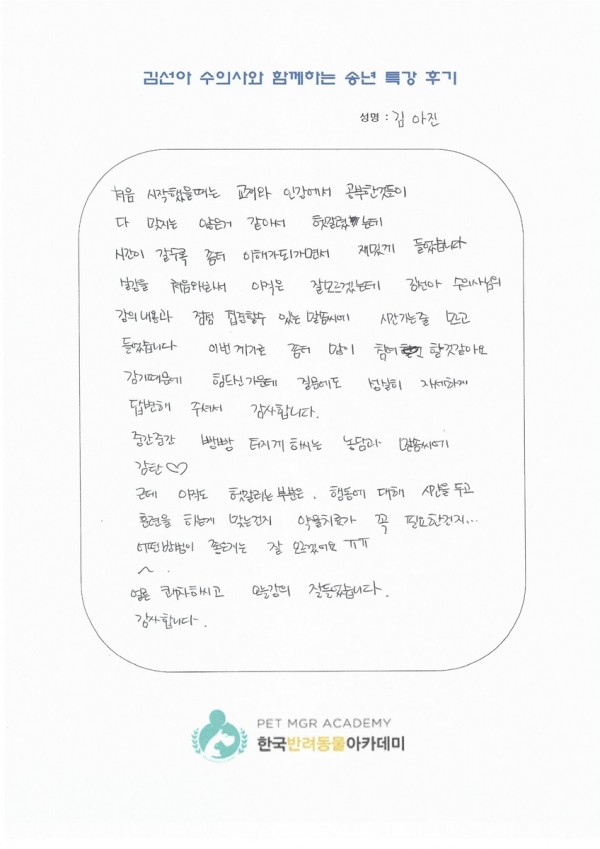 김선아 수의사와 함께하는 송년 특강 후기
성명 : 김아진
처음 시작했을때는 교제와 인강에서 공부한것들이
다 맞지는 않은거 같아서 헷갈렸는데
시간이 갈수록 좀더 이해가되가면서 재밌게 들었습니다
처음와봐서 아직은 잘모르겠는데 김선아 수의사님의
강의내용과 점점 집중할수 있는 말씀씨에 시간가는줄 모르고
들었습니다 이번계기로 좀더 많이 참여 할것같아요
감기때문에 힘드신가운데 질문에도 성실히 자세하게
답변해 주셔서 감사합니다.
중간중간 빵빵 터지게 하시는 농담과 말씀씨에
감탄♡
근데 아직도 헷갈리는부분은, 행동에 대해 시간을 두고
훈련을 하는게 맞는건지 약물치료가 꼭 필요한건지...
어떤방법이 좋은거는 잘 모르겠어요 ㅠㅠ
얼른 쾌차하시고 오늘강의 잘들었습니다.
감사합니다.
PET MGR ACADEMY
한국반려동물아카데미